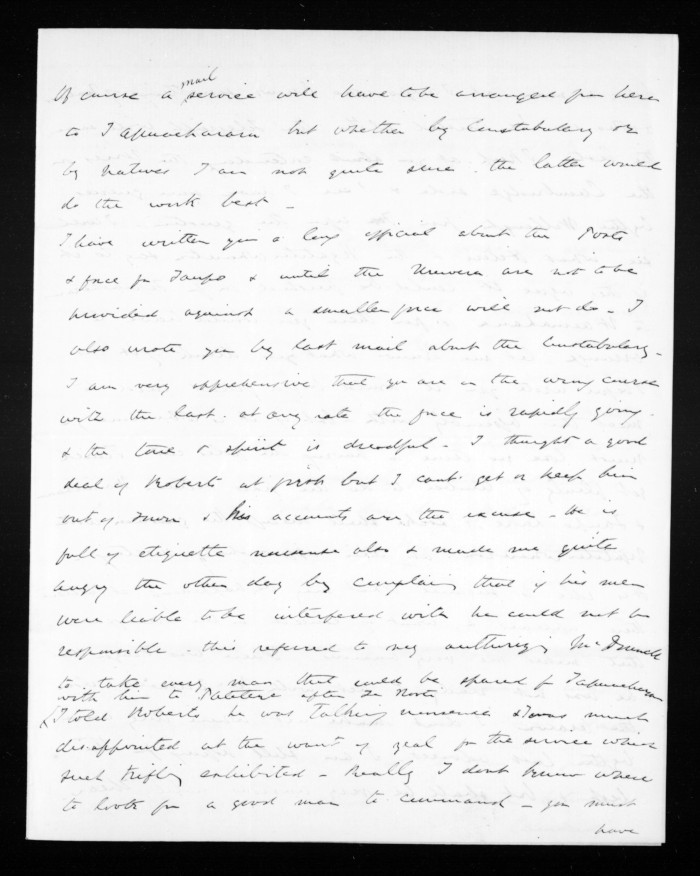 Of course a mail service will have to be arranged from here
to Tapuaeharara but whether by Constabulary or
by Natives I am not quite sure. the latter would
do the work best -
I have written you a long official about the Posts
& force for Taupo & until the Urewera are not to be
provided against a smaller force will not do - I
also wrote you by last mail about the Constabulary -
I am very apprehensive that you are on the wrong course
with the last. at any rate the force is rapidly going -
& the tone & spirit is dreadful - I thought a good
deal of Roberts at first but I cant get or keep him
out of Town & his accounts are the excuse - he is
full of etiquette nonsense also & made me quite
angry the other day by complaining that if his men
were liable to be interfered with he could not be
responsible - this referred to my authorizing McDonnell
to take every man that could be spared from Tapuaeharara
with him to Patetere after Te Kooti
(I told Roberts he was talking nonsense & I was much
disappointed at the want of zeal for the service which
such trifling exhibited - Really I dont know where
to look for a good man to command - you must
have